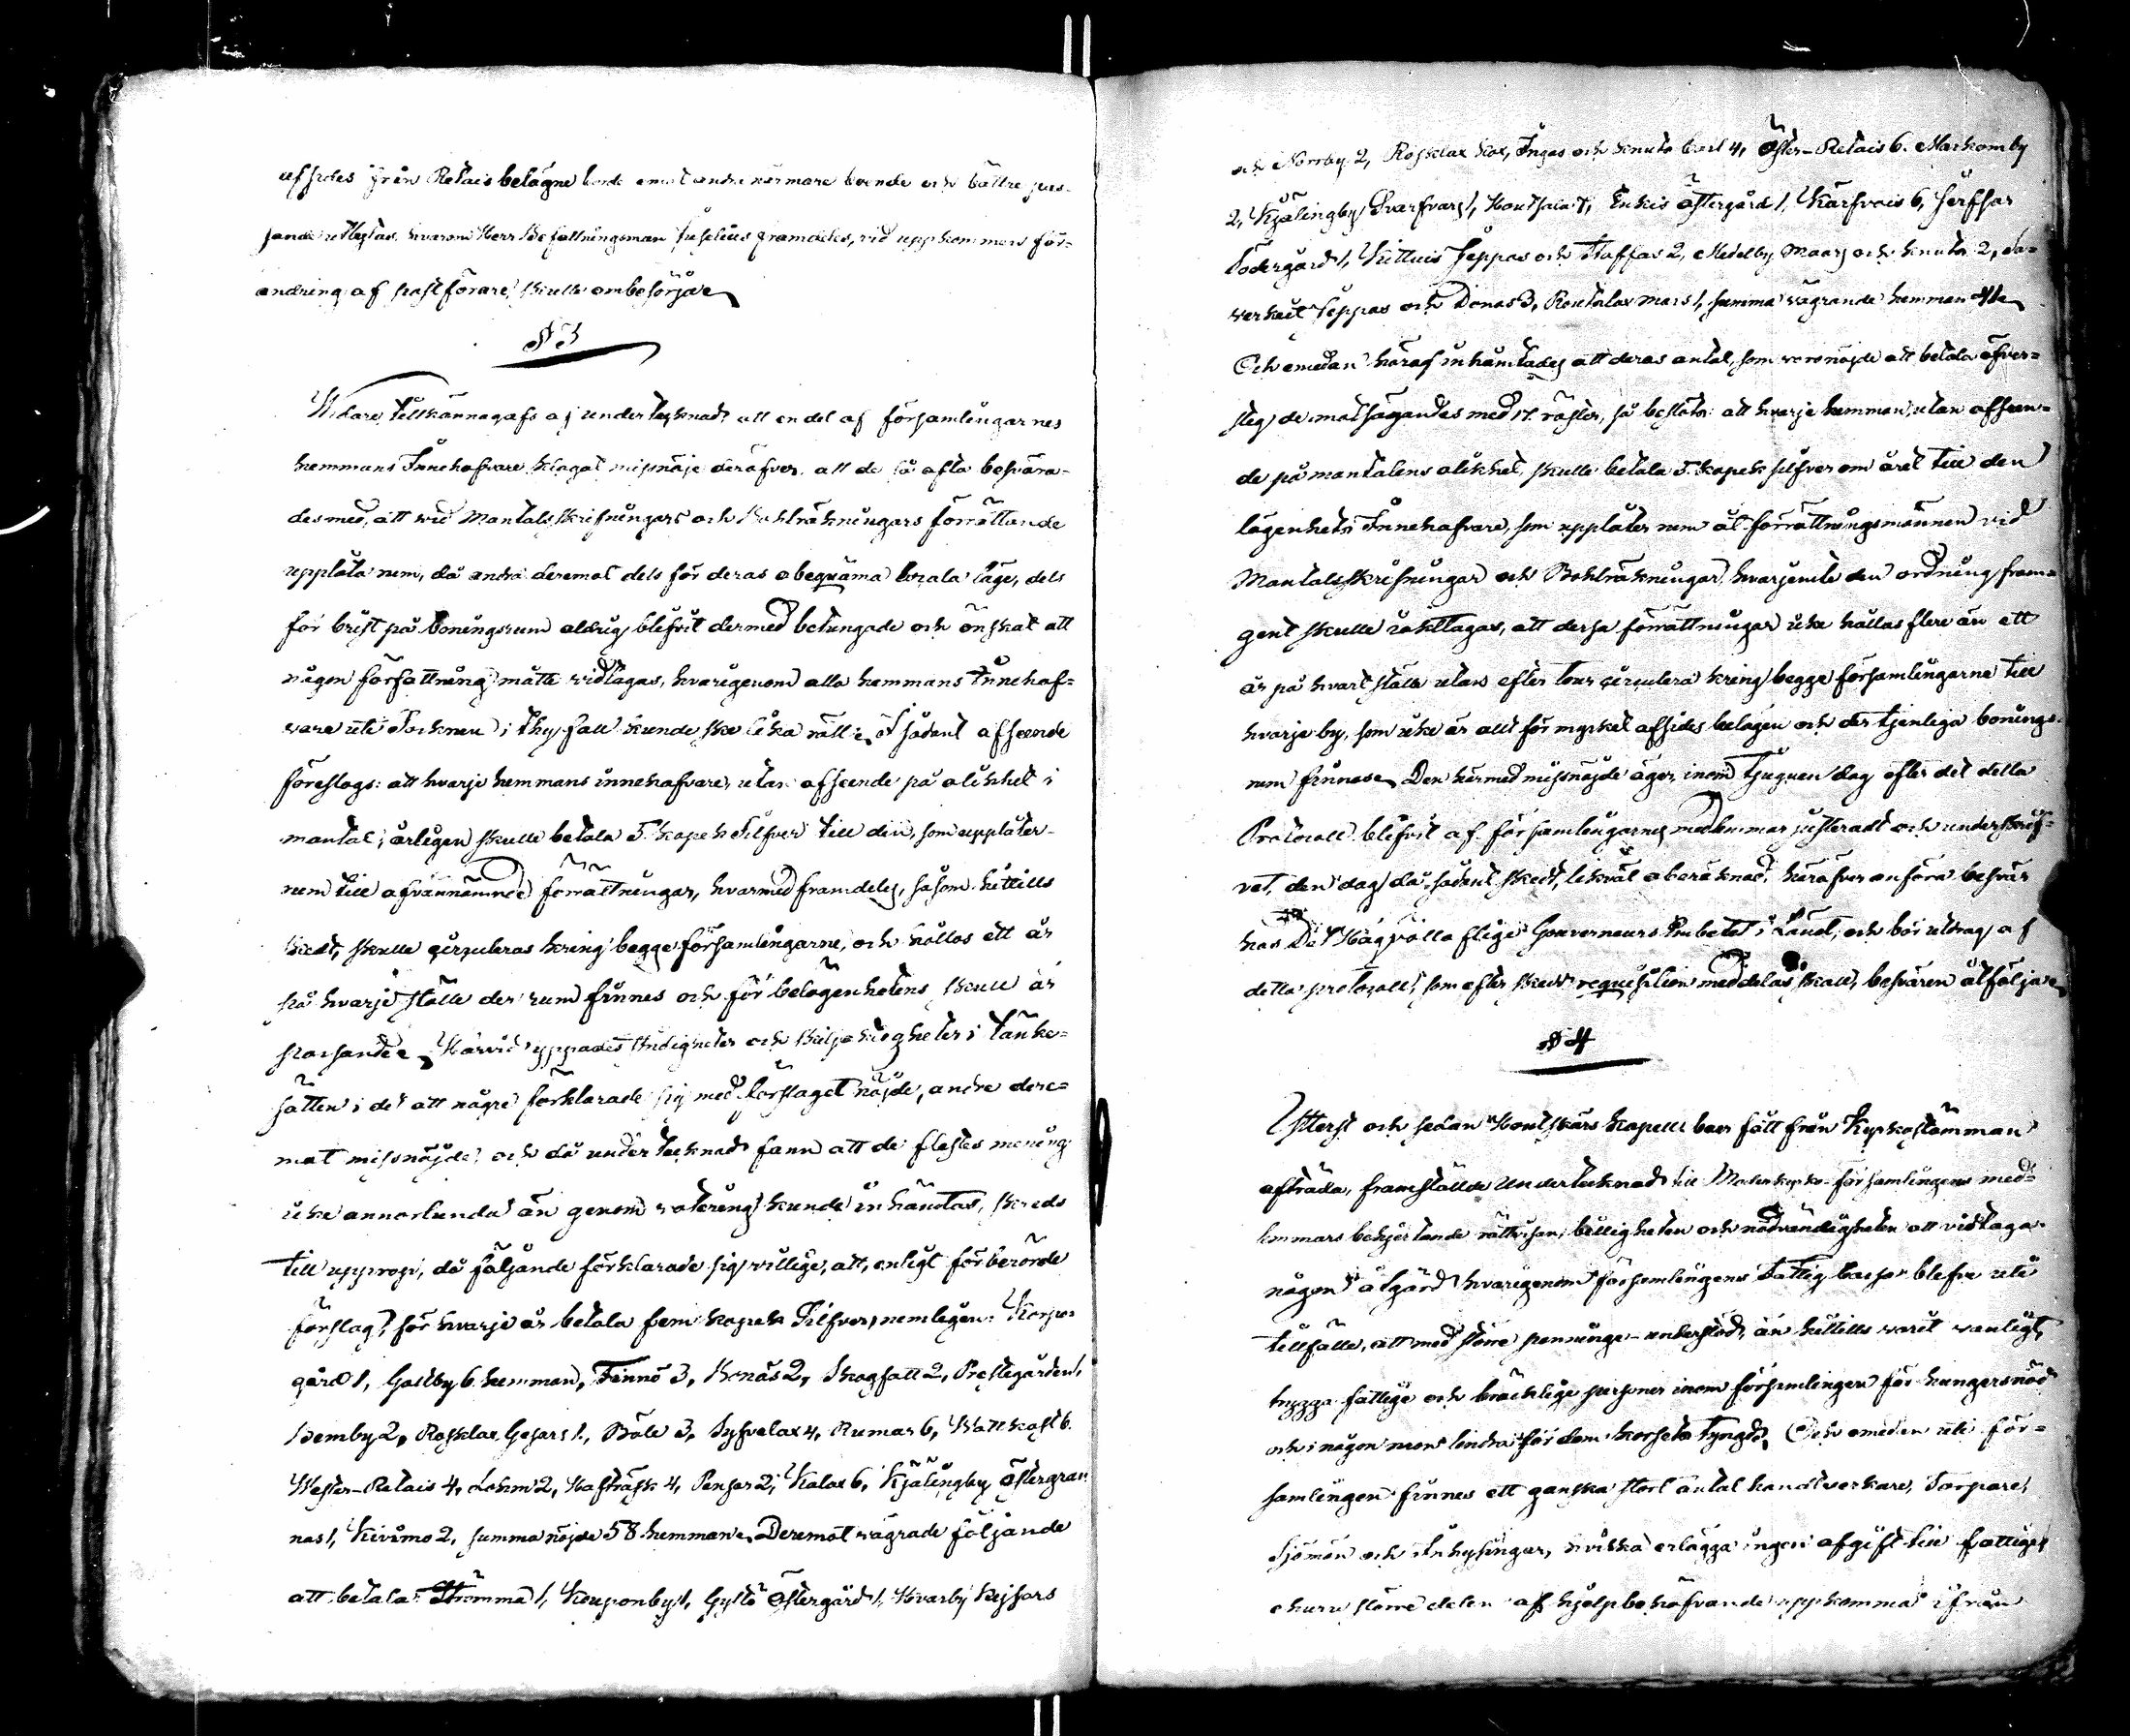 afsides från Retais belägne borde emot andra närmare boende och bättre pas-
sande utbytas, hvarom Herr Befallningsman Juselius framdeles, vid uppkommen för-
ändring af postförare, skulle ombesörja.
§ 3
Vidare tillkännagafs af undertecknad, att en del af församlingarnes
hemmans Innehafvare klagat missnöje deröfver, att de så ofta besvära-
des med, att vid Mantalsskrifningars och Bohlräkningars förrättande
upplåta rum, då andra deremot dels för deras obequäma locala läge, dels
för brist på boningsrum aldrig blifvit dermed betungade och önskat att
någon författning måtte vidtagas, hvarigenom alla hemmans Innehaf-
vare uti Socknen i thy fall kunde ske lika rätt; i sådant afseende
föreslogs: att hvarje hemmans innehafvare, utan afseende på olikhet i
mantal, årligen skulle betala 5 kopek Silfver till den, som upplåter
rum till ofvannämnde förrättningar, hvarmed framdeles, såsom hittills
skedt, skulle circuleras kring begge församlingarne, och hållas ett år
på hvarje ställe der rum finnes och för belägenhetens skull är
passande. Härvid yppades stridigheter och skiljaktigheter i tänke-
sätten i det att någre förklarade sig med förslaget nöjde, andre dere-
mot missnöjde, och då undertecknad fann att de flestes mening
icke annorlunda än genom votering kunde inhämtas, skreds
till upprop, då följande förklarade sig villige, att, enligt förberörde
förslag, för hvarje år betala fem kopek Silfver, nemligen: Korpo-
gård 1, Galtby 6 hemman, Finnö 3, Bonäs 2, Skogfatt 2, Prestegården 1,
Wemby 2, Rosklax Gösars 1, Böle 3, Syfvelax 4, Rumar 6, Wattkast 6
Wester-Retais 4, Lohm 2, Hafträsk 4, Pensar 2, Kalax 6, Kjälingby Östergran-
nas 1, Kivimo 2, summa nöjde 58 hemman. Deremot vägrade följande
att betala: Strömma 1, Kouponby 1, Gyltö Östergård 1, Hvarby Kejsars
och Norrby 2, Rosklax Kax, Ingas och Knuts Carl 4, Öster-Retais 6, Markomby
2, Kjälingby Svarfvars 1, Houtsala 7, Enkis Östergård 1, Kärfvois 6, Järfsor
Södergård 1, Kittuis Jeppas och Staffas 2, Medelby Maars och Knuts 2, Sa-
verkeit Jeppas och Donas 3, Routalax Mars 1, summa vägrande hemman 41.
Och emedan häraf inhämtades att deras antal, som voro nöjde att betala öfver-
steg de motsägandes med 17 röster, så beslöts: att hvarje hemman, utan afseen-
de på mantalens olikhet, skulle betala 5 kopek silfver om året till den
lägenhets Innehafvare, som upplåter rum åt förrättningsmännen vid
Mantalsskrifningar och Bohlräkningar, hvarjemte den ordning fram-
gent skulle iakttagas, att dessa förrättningar icke hållas flere än ett
år på hvart ställe utan efter tour circulera kring begge församlingarne till
hvarje by, som icke är allt för mycket afsides belägen och der tjenliga bonings-
rum finnas. Den härmed missnöjde äger, inom tjugu en dag efter det detta
Protocoll blifvit af församlingarnes medlemmar justeradt och underskrif-
vet, den dag då sådant skedt, likväl oberäknad, häröfver anföra besvär
hos Det Höglofliga Gouverneurs Embetet i Länet, och bör utdrag af
detta protocoll, som efter skedd requisition meddelas skall, besvären åtfölja.
§ 4
Ytterst och sedan Houtskärs Kapell boer fått från Kyrkostämman
afträda, framställde Undertecknad till Moderkyrko-församlingens med-
lemmars behjertande rättvisan, billigheten och nödvändigheten att vidtaga
någon åtgärd hvarigenom församlingens Fattig Cassa blefve uti
tillfälle, att med större pennings-understöd, än hittills varit vanligt,
trygga fattige och bräcklige personer inom församlingen för hungersnöd
och i någon mon lindra för dem korsets tyngd. Och emedan uti för-
samlingen finnes ett ganska stort antal handtverkare, Torpare,
Sjömän och Inhysingar, hvilka erlägga ingen afgift till fattige,
ehuru större delen af hjelpbehöfvande uppkomma ifrån